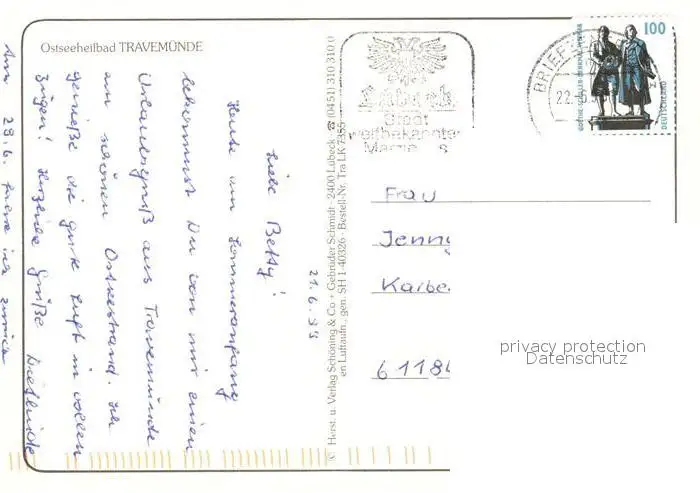 Ostseeheilbad TRAVEMÜNDE
21.6.99
Liebe Betty!
Heute am Sommeranfang
bekommst Du von mir einen
Urlaubsgruß aus Travemünde
am schönen Ostseestrand. Ich
genieße die gute Luft in vollen
Zügen! Herzliche Grüße Dietlinde
Am 28.6. fahre ich zurück
Herst. u. Verlag Schöning & Co + Gebrüder Schmidt · 2400 Lübeck ☎ (0451) 310 310
en Luftaufn. gen. SH 1-40326 · Bestell-Nr. Tra LK 7355
Lübeck
Stadt
weltbekannte
BRIEF
22.
100
GOETHE-SCHILLER-DENKMAL WEIMAR
DEUTSCHLAND
Frau
Jenny
Karbe
6118
privacy protection
Datenschutz